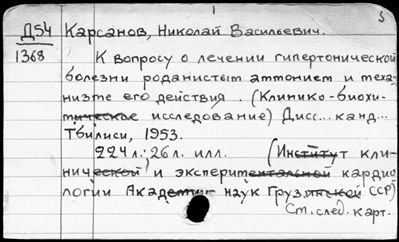 5
Д54 Карсанов, Николай Васильевич.
1368 К вопросу о лечении гипертонической
болезни роданистым аммонием и меха-
низме его действия. (Клинико-биохи-
мическое исследование) Дисс... канд...
Тбилиси, 1953.
224л.; 26л. илл. (Институт кли-
нической и экспериментальной кардио
логии Академии наук Груз.инской ССР)
См. след. карт.